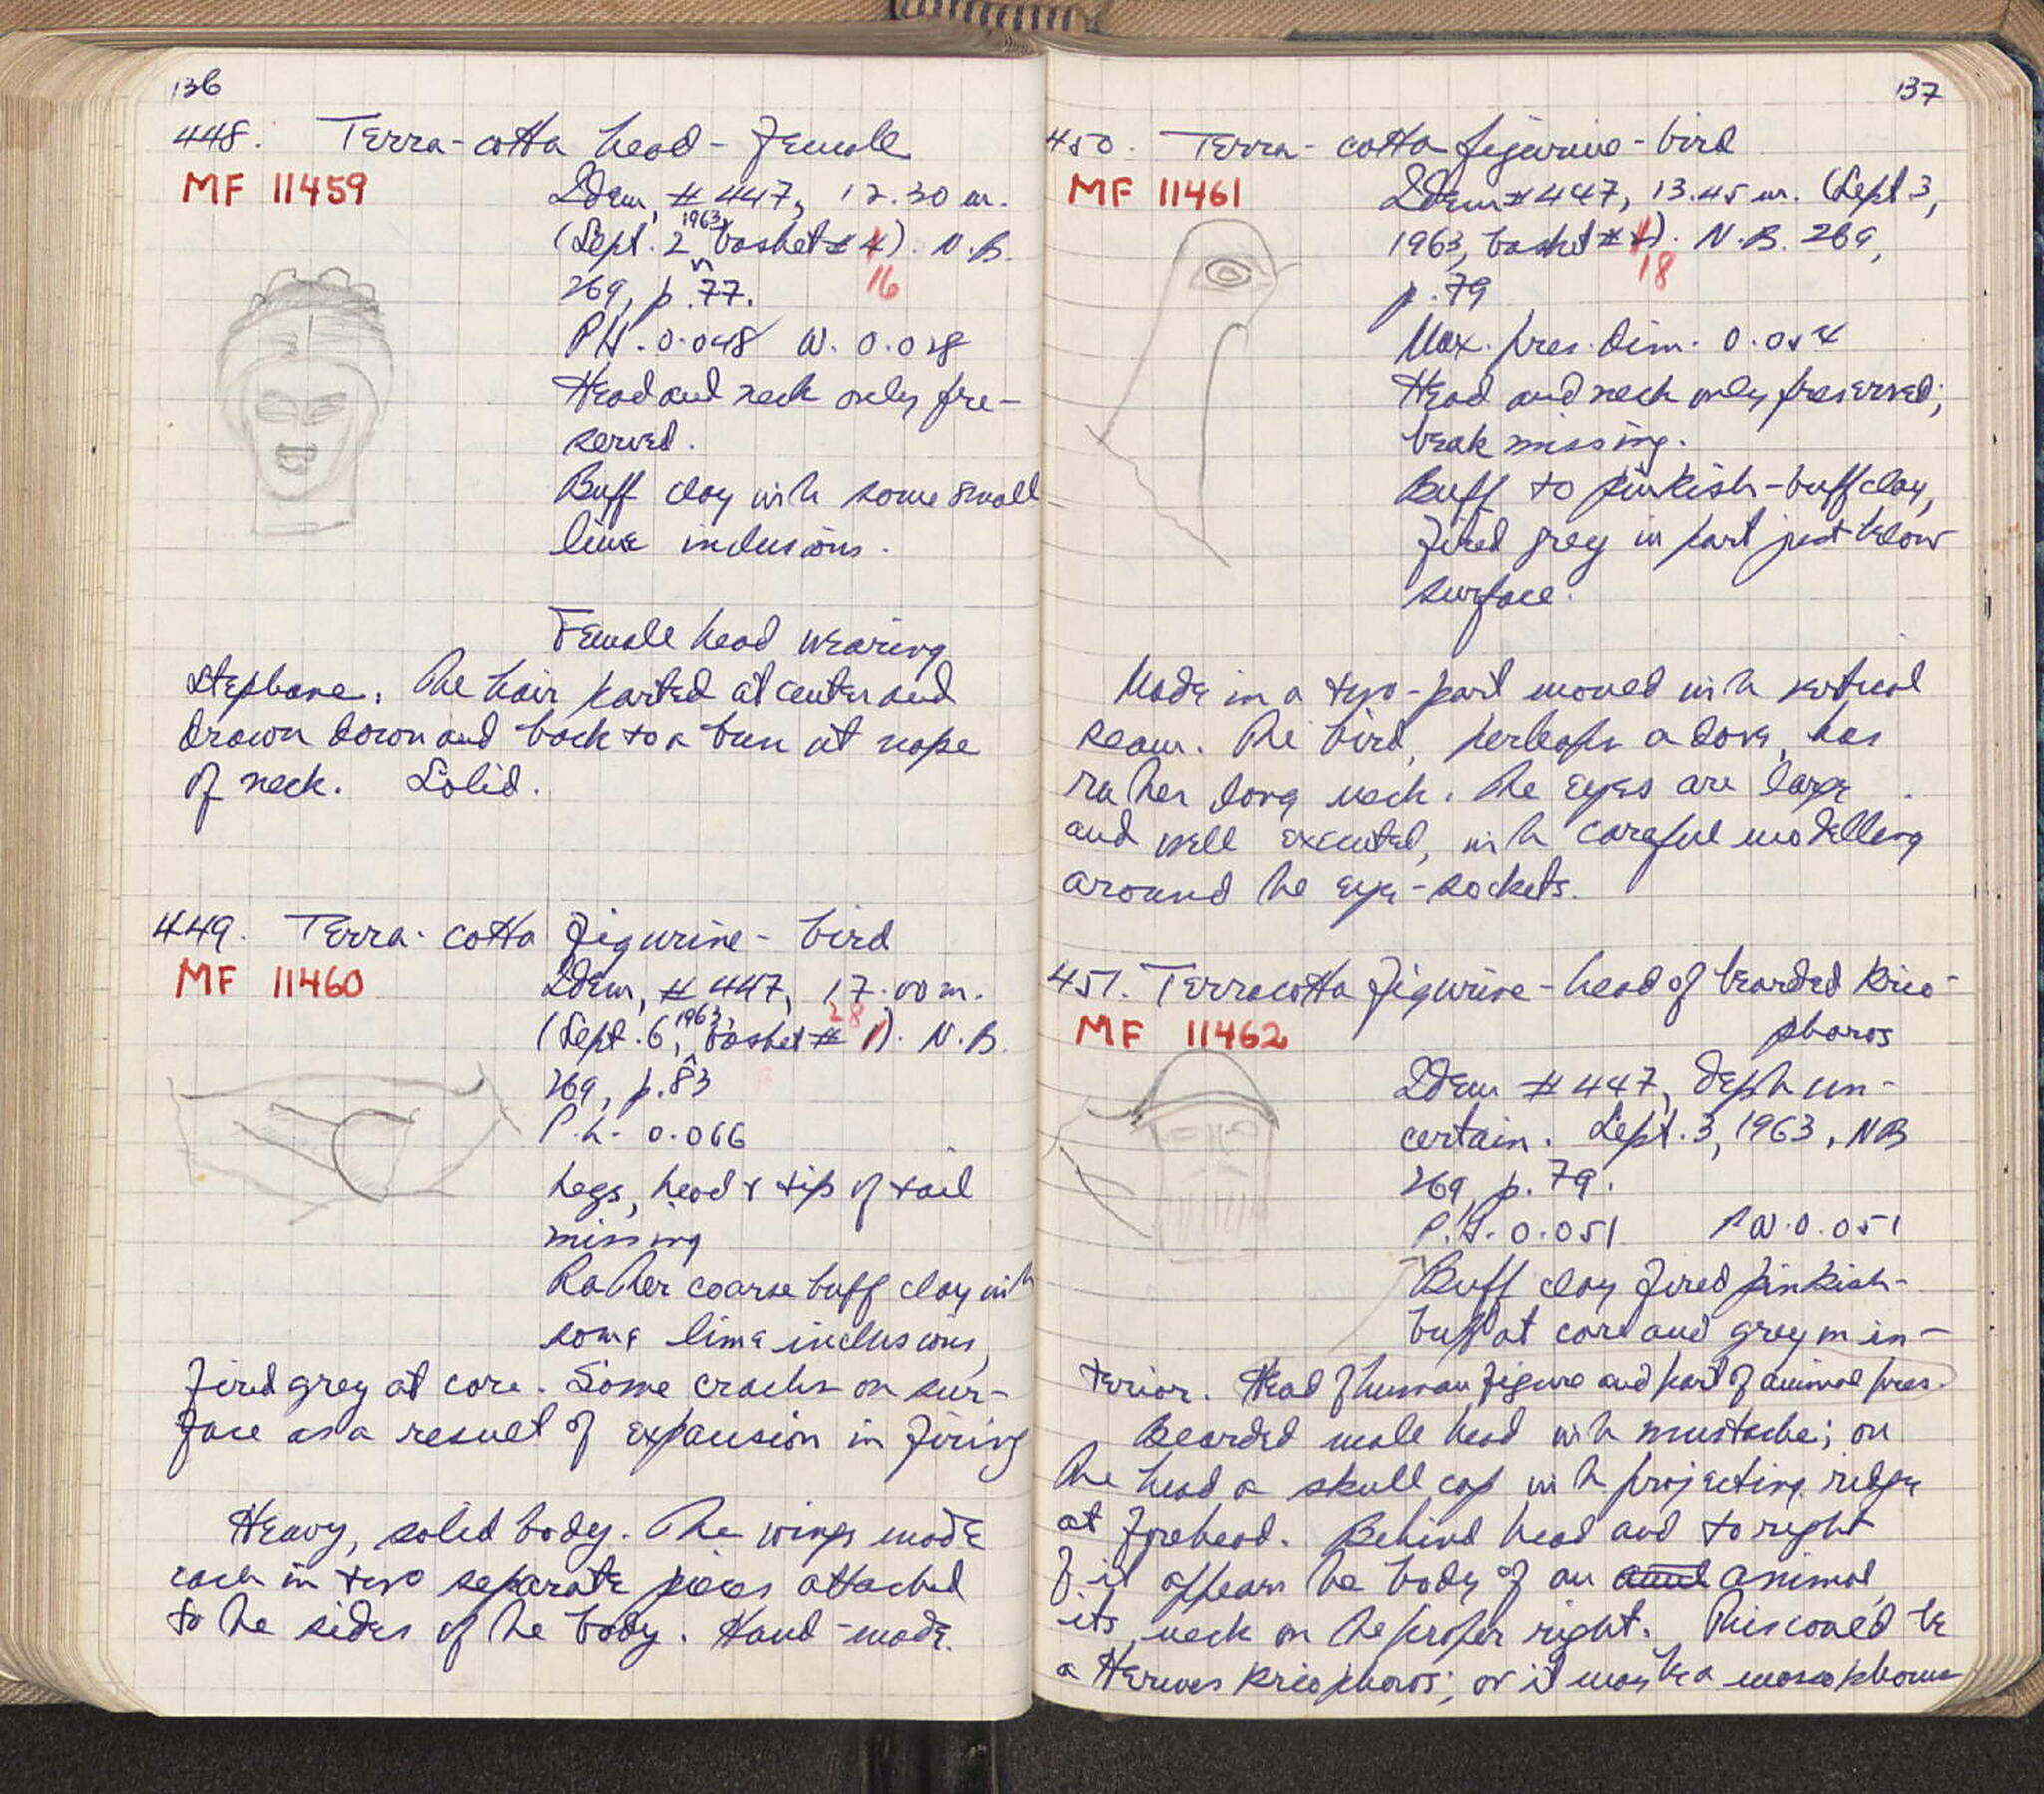 136
448. Terra-cotta head - female
MF 11459
Idem, # 447, 12.30 m.
(Sept. 2, 1963, basket # 16). N.B.
269, p. 77.
P.H. 0.048 W. 0.028
Head and neck only pre-
served.
Buff clay with some small
lime inclusions.
Female head wearing
stephane. The hair parted at center and
drawn down and back to a bun at nape
of neck. Solid.
449. Terra-cotta figurine - bird
MF 11460
Idem, # 447, 17.00 m.
(Sept. 6, 1963, basket # 28). N.B.
269, p. 83
P.L. 0.066
Legs, head & tip of tail
missing
Rather coarse buff clay with
some lime inclusions,
fired grey at core. Some cracks on sur-
face as a result of expansion in firing
Heavy, solid body. The wings made
each in two separate pieces attached
to the sides of the body. Hand-made.
137
450. Terra-cotta figurine - bird
MF 11461
Idem # 447, 13.45 m. (Sept 3,
1963, basket # 18). N.B. 269,
p. 79
Max. pres. dim.
Head and neck only preserved;
beak missing.
Buff to pinkish-buff clay,
fired grey in part just below
surface.
Made in a two-part mould with vertical
seam. The bird, perhaps a dove, has
rather long neck. The eyes are large
and well executed, with careful modelling
around the eye-sockets.
451. Terracotta figurine - head of bearded Krio-
phoros
MF 11462
Idem # 447, depth un-
certain. Sept. 3, 1963, NB
269, p. 79.
P.H. 0.051 P.W. 0.051
Buff clay fired pinkish-
buff at core and grey in in-
terior. Head of human figure and part of animal pres.
Bearded male head with mustache; on
the head a skull cap with projecting ridge
at forehead. Behind head and to right
of it appears the body of an animal,
its neck on the proper right. This could be
a Hermes Kriophoros; or it may be a moscophoros